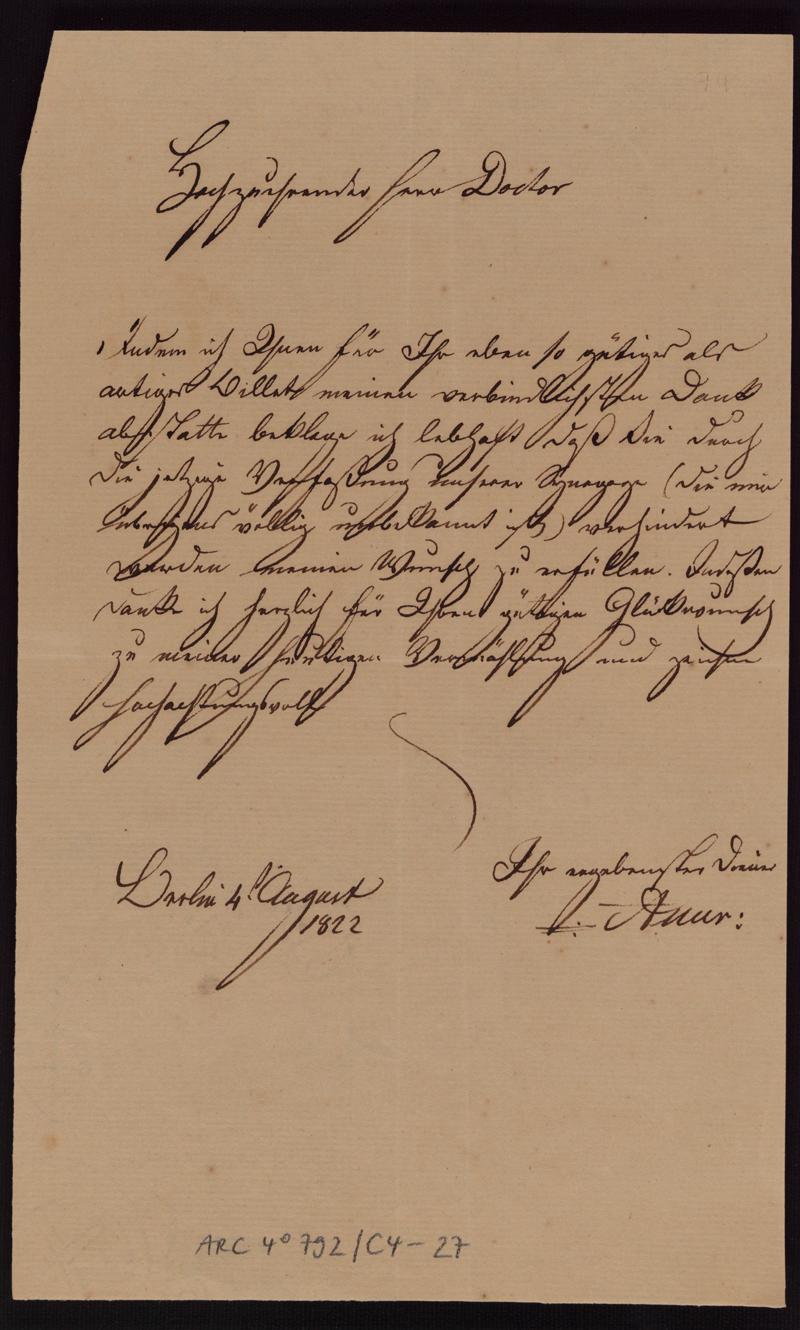 74
Hochzuehrender Herr Doctor
Indem ich Ihnen für Ihr eben so gütiges als
artiges Billet meinen verbindlichsten Dank
abstatte beklage ich lebhaft daß Sie durch
die jetzige Verfassung unserer Synagoge (die mir
übrigens völlig unbekannt ist) verhindert
werden meinen Wunsch zu erfüllen. Indessen
danke ich herzlich für Ihren gütigen Glückwunsch
zu meiner heutigen Vermählung und zeichne
hochachtungsvoll
Ihr ergebenster Diener
Berlin 4t August
1822
ARC 4° 792/C4-27